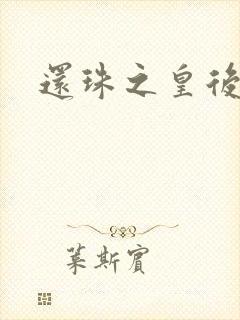 還珠之皇後
葉斯賓